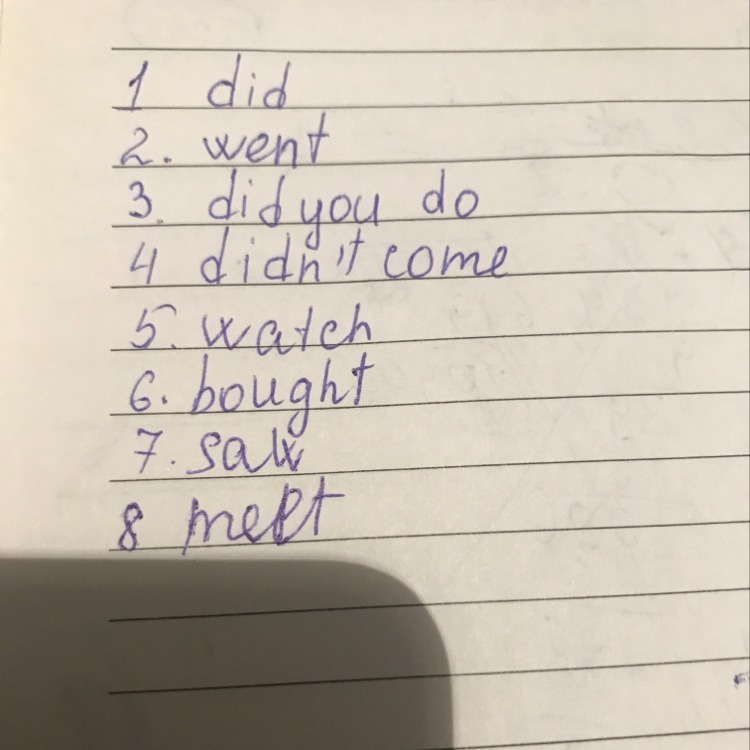 1 did
2. went
3. did you do
4 didn't come
5. watch
6. bought
7. saw
8